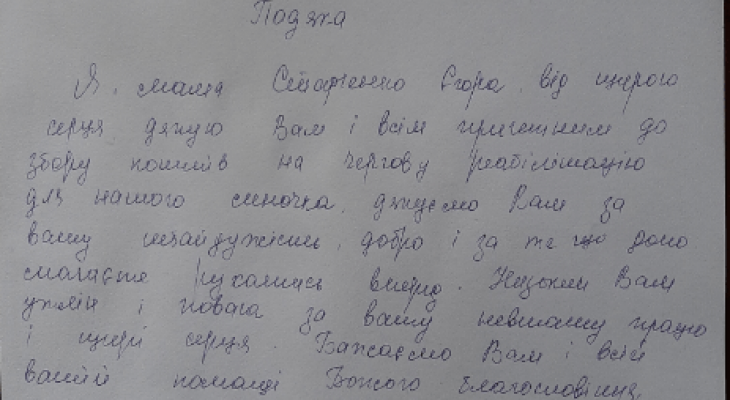 Подяка
Я, мама Єгора, від щирого
серця дякую Вам і всім причетним до
збору коштів на чергову реабілітацію
для нашого синочка, дякуємо Вам за
вашу небайдужість, добро і за те що допо
магаєте рухатись вперед. Низький Вам
уклін і повага за вашу невпинну працю
і щирі серця. Бажаємо Вам і всій
вашій команді Божого благословіння,